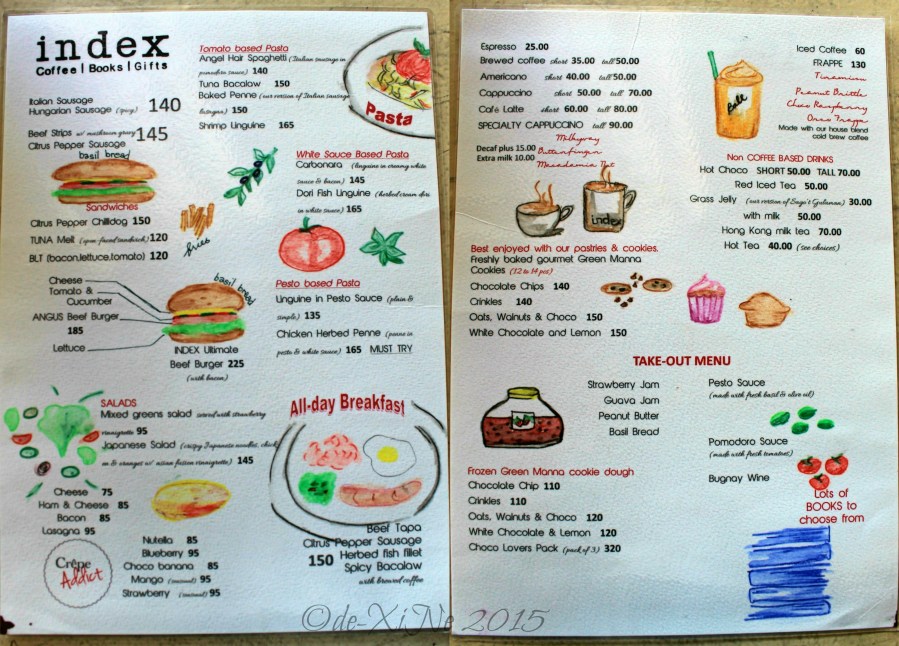 index
Coffee | Books | Gifts
Italian Sausage
Hungarian Sausage (spicy) 140
Beef Strips w/ mushroom gravy 145
Citrus Pepper Sausage
basil bread
Sandwiches
Citrus Pepper Chillidog 150
TUNA Melt (open faced sandwich) 120
BLT (bacon,lettuce,tomato) 120
fries
Cheese
Tomato &
Cucumber
ANGUS Beef Burger
185
Lettuce
basil bread
INDEX Ultimate
Beef Burger 225
(with bacon)
SALADS
Mixed greens salad served with strawberry
vinaigrette 95
Japanese Salad (crispy Japanese noodles, chick
en & oranges w/ asian fusion vinaigrette) 145
Cheese 75
Ham & Cheese 85
Bacon 85
Lasagna 95
Crêpe
Addict
Nutella 85
Blueberry 95
Choco banana 85
Mango (seasonal) 95
Strawberry (seasonal) 95
Tomato based Pasta
Angel Hair Spaghetti (Italian sausage in
pomodoro sauce) 140
Tuna Bacalaw 150
Baked Penne (our version of Italian sausage
lasagna) 150
Shrimp Linguine 165
Pasta
White Sauce Based Pasta
Carbonara (linguine in creamy white
sauce & bacon) 145
Dori Fish Linguine (herbed cream dori
in white sauce) 165
Pesto based Pasta
Linguine in Pesto Sauce (plain &
simple) 135
Chicken Herbed Penne (penne in
pesto & white sauce) 165 MUST TRY
All-day Breakfast
Beef Tapa
Citrus Pepper Sausage
150 Herbed fish fillet
Spicy Bacalaw
with brewed coffee
Espresso 25.00
Brewed coffee short 35.00 tall 50.00
Americano short 40.00 tall 50.00
Cappuccino short 50.00 tall 70.00
Café Latte short 60.00 tall 80.00
SPECIALTY CAPPUCCINO tall 90.00
Milkyway
Decaf plus 15.00 Butterfinger
Extra milk 10.00 Macadamia Nut
index
Best enjoyed with our pastries & cookies.
Freshly baked gourmet Green Manna
Cookies (12 to 14 pcs)
Chocolate Chips 140
Crinkles 140
Oats, Walnuts & Choco 150
White Chocolate and Lemon 150
Iced Coffee 60
FRAPPE 130
Tiramisu
Peanut Brittle
Choco Raspberry
Oreo Frappe
Made with our house blend
cold brew coffee
Non COFFEE BASED DRINKS
Hot Choco SHORT 50.00 TALL 70.00
Red Iced Tea 50.00
Grass Jelly (our version of Sago't Gulaman) 30.00
with milk 50.00
Hong Kong milk tea 70.00
Hot Tea 40.00 (see choices)
TAKE-OUT MENU
Strawberry Jam
Guava Jam
Peanut Butter
Basil Bread
Pesto Sauce
(made with fresh basil & olive oil)
Pomodoro Sauce
(made with fresh tomatoes)
Bugnay Wine
Frozen Green Manna cookie dough
Chocolate Chip 110
Crinkles 110
Oats, Walnuts & Choco 120
White Chocolate & Lemon 120
Choco Lovers Pack (pack of 3) 320
Lots of
BOOKS to
choose from
©de-XiNe 2015